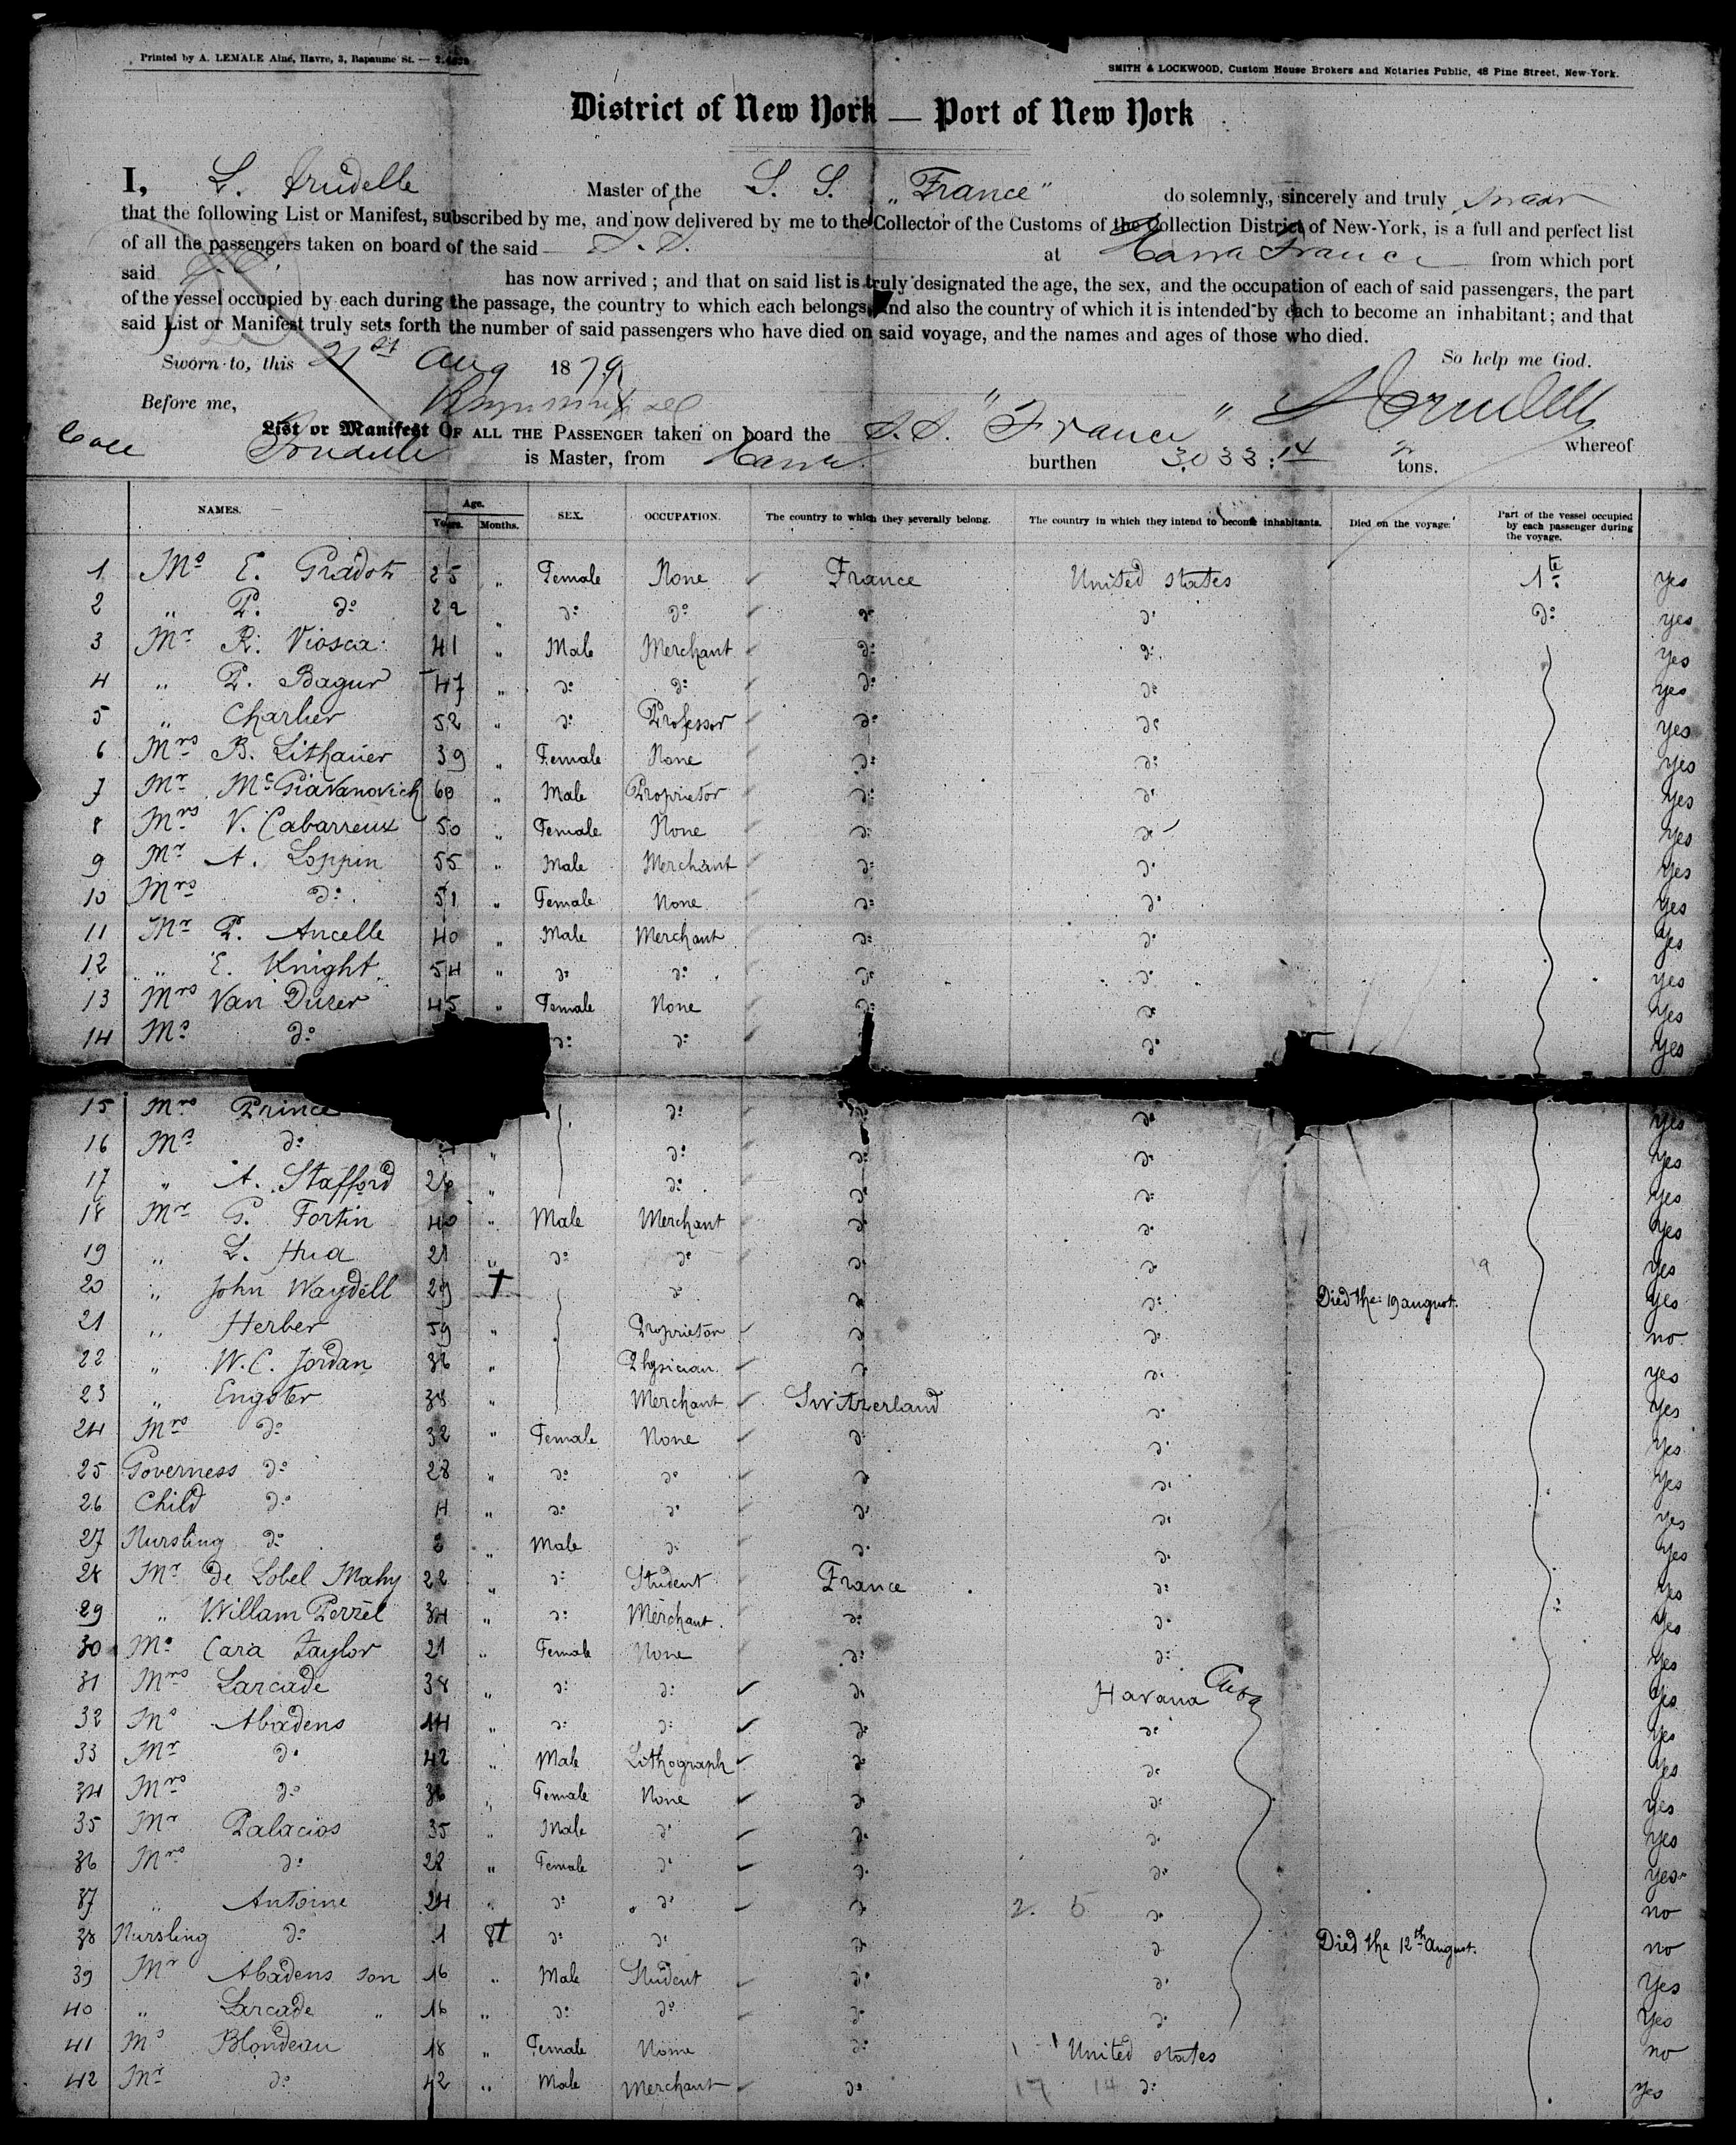 Printed by A. LEMALE Aîné, Havre, 3, Bapaume St. —
SMITH & LOCKWOOD, Custom House Brokers and Notaries Public, 48 Pine Street, New-York.
District of New York — Port of New York
I, L. Trudelle Master of the S. S. „France" do solemnly, sincerely and truly swear
that the following List or Manifest, subscribed by me, and now delivered by me to the Collector of the Customs of the Collection District of New-York, is a full and perfect list
of all the passengers taken on board of the said S. S. at Havre France from which port
said S. S. has now arrived; and that on said list is truly designated the age, the sex, and the occupation of each of said passengers, the part
of the vessel occupied by each during the passage, the country to which each belongs, and also the country of which it is intended by each to become an inhabitant; and that
said List or Manifest truly sets forth the number of said passengers who have died on said voyage, and the names and ages of those who died.
Sworn to, this 21st Aug 1879 So help me God.
Before me, Trudelle
List or Manifest OF ALL THE PASSENGER taken on board the S. S. "France" whereof
Trudelle is Master, from Havre burthen 3033 14 tons.
NAMES. Age. Years. Months. SEX. OCCUPATION. The country to which they severally belong. The country in which they intend to become inhabitants. Died on the voyage. Part of the vessel occupied by each passenger during the voyage.
1 Ms E. Gradot 25 „ Female None France United states 1te yes
2 „ P. do 22 „ do do do do do yes
3 Mr R. Viosca 41 „ Male Merchant do do yes
4 „ P. Bagur 47 „ do do do do yes
5 „ Charlier 52 „ do Professor do do yes
6 Mrs B. Lithauer 39 „ Female None do do yes
7 Mr Mc Giavanovich 60 „ Male Proprietor do do yes
8 Mrs V. Cabarreux 50 „ Female None do do yes
9 Mr A. Loppin 55 „ Male Merchant do do yes
10 Mrs do 51 „ Female None do do yes
11 Mr P. Ancelle 40 „ Male Merchant do do yes
12 „ E. Knight 54 „ do do do do yes
13 Mrs Van Duzer 45 „ Female None do do yes
14 Ms do do do do yes
15 Mrs Prince do do yes
16 Ms do „ do do do yes
17 „ A. Stafford 26 „ do do do yes
18 Mr G. Fortin 40 „ Male Merchant do do yes
19 „ L. Hua 21 „ do do do do yes
20 „ John Waydell 29 † do do do Died the 19 august. yes
21 „ Herber 59 „ Proprietor do do no
22 „ W. C. Jordan 36 „ Physician do do yes
23 „ Engster 38 „ Merchant Switzerland do yes
24 Mrs do 32 „ Female None do do yes
25 Governess do 28 „ do do do do yes
26 Child do 4 „ do do do do yes
27 Nursling do 2 „ Male do do do yes
28 Mr de Lobel Mahy 22 „ do Student France do yes
29 „ Willam Perzel 34 „ do Merchant do do yes
30 Ms Cara Taylor 21 „ Female None do do yes
31 Mrs Larcade 38 „ do do do Havana Cuba yes
32 Ms Abadens 14 „ do do do do yes
33 Mr do 42 „ Male Lithograph do do yes
34 Mrs do 36 „ Female None do do yes
35 Mr Palacios 35 „ Male do do do yes
36 Mrs do 28 „ Female do do do yes
37 „ Antoine 24 „ do do do 2. 5 do no
38 Nursling do 1 8† do do do do Died the 12th august. no
39 Mr Abadens son 16 „ Male Student do do yes
40 „ Larcade „ 16 „ do do do do yes
41 Ms Blondeau 18 „ Female None do United states no
42 Mr do 42 „ Male Merchant do 17 14 do yes